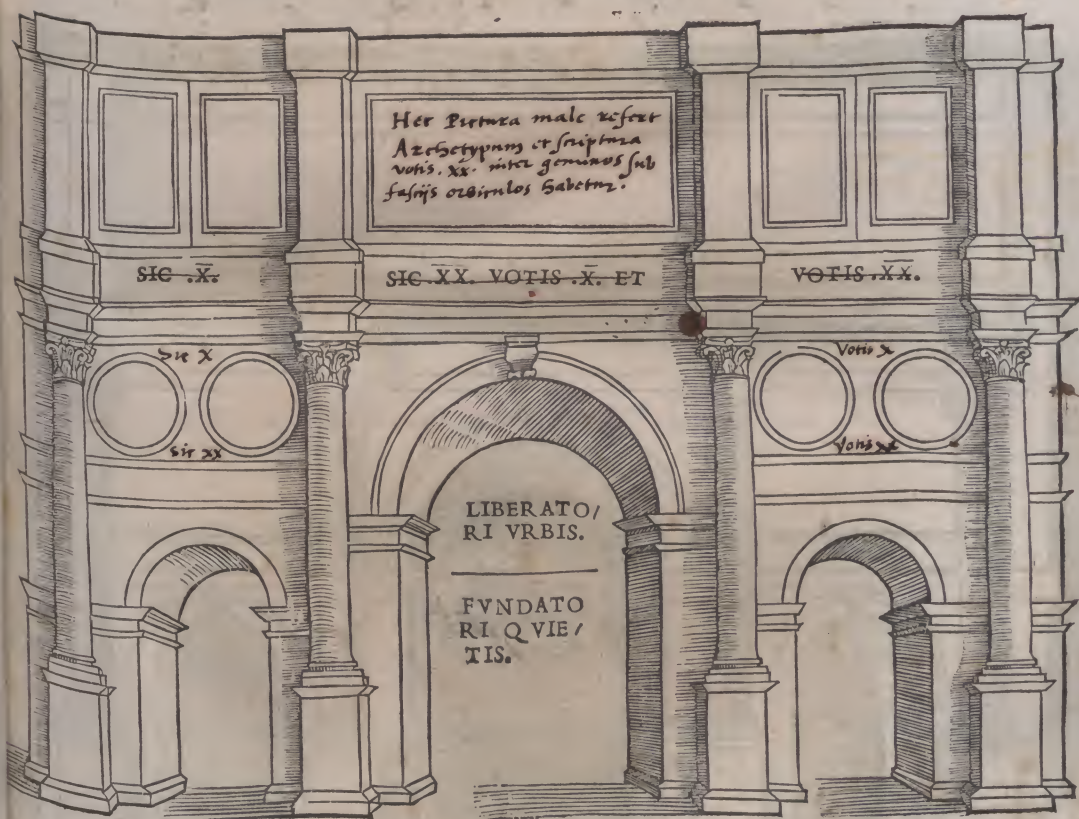 Hec Pictura male refert
Archetypum et scriptura
votis . xx . inter geminos sub
fascijs orbiculos habetur .
SIC .X̅.
SIC X̅X̅. VOTIS .X̅. ET
VOTIS .X̅X̅.
Sic X
Votis X
Sic XX
Votis XX
LIBERATO/
RI VRBIS.
FVNDATO
RI QVIE/
TIS.